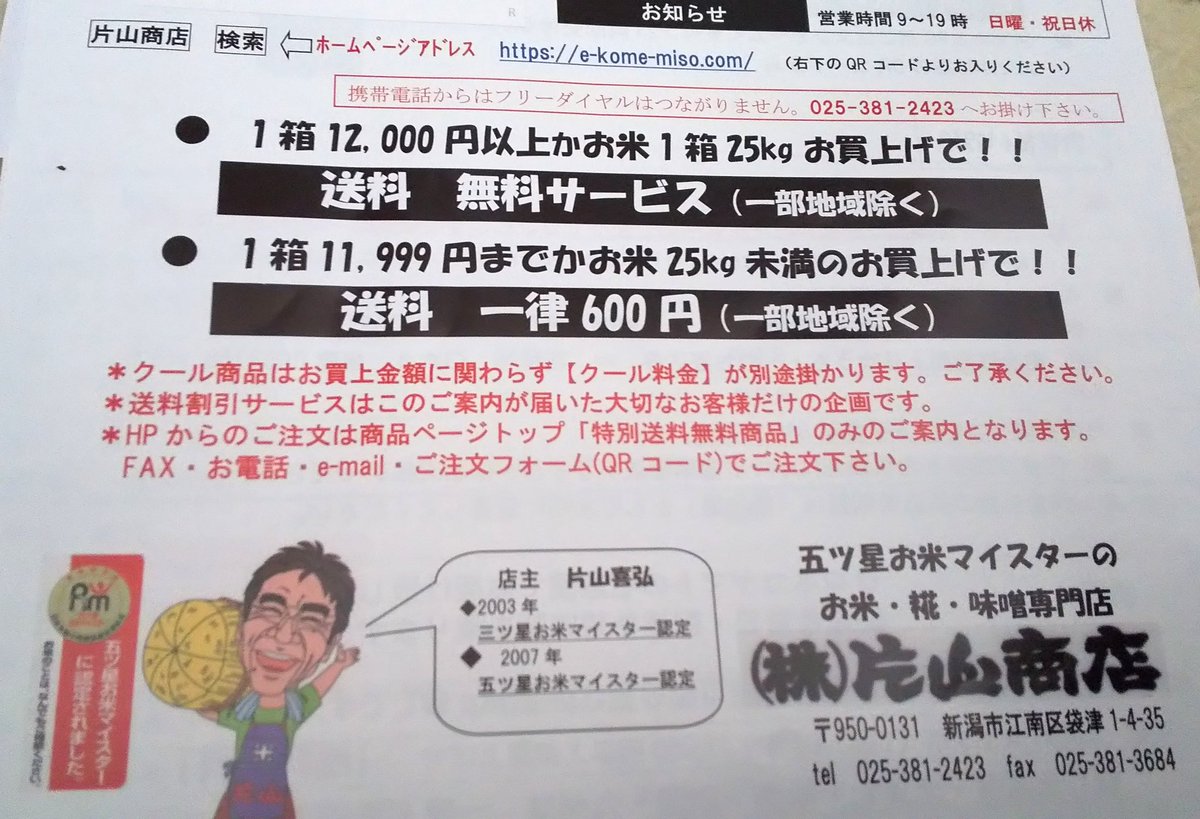 お知らせ
営業時間9～19時 日曜・祝日休
片山商店 検索 ホームページアドレス https://e-kome-miso.com/ (右下のQRコードよりお入りください)
携帯電話からはフリーダイヤルはつながりません。025-381-2423へお掛け下さい。
● 1箱12,000円以上かお米1箱25kgお買上げで！！
送料 無料サービス(一部地域除く)
● 1箱11,999円までかお米25kg未満のお買上げで！！
送料 一律600円(一部地域除く)
＊クール商品はお買上金額に関わらず【クール料金】が別途掛かります。ご了承ください。
＊送料割引サービスはこのご案内が届いた大切なお客様だけの企画です。
＊HPからのご注文は商品ページトップ「特別送料無料商品」のみのご案内となります。
FAX・お電話・e-mail・ご注文フォーム(QRコード)でご注文下さい。
五ツ星お米マイスター
に認定されました。
店主 片山喜弘
◆2003年
三ツ星お米マイスター認定
◆ 2007年
五ツ星お米マイスター認定
米
片山
五ツ星お米マイスターの
お米・糀・味噌専門店
(株)片山商店
〒950-0131 新潟市江南区袋津1-4-35
tel 025-381-2423 fax 025-381-3684